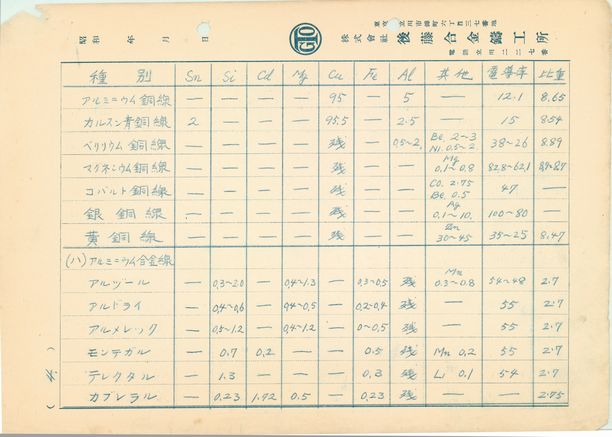 東京 立川市錦町六丁目三七番地
昭和 年 月 日
GTO
株式會社 後藤合金鑄工所
電話立川二二七番
種別 Sn Si Cd Mg Cu Fe Al 其他 電導率 比重
アルミニウム銅線 — — — — 95 — 5 — 12.1 8.65
カルスン青銅線 2 — — — 95.5 — 2.5 — 15 8.54
ベリリウム銅線 — — — — 残 — 0.5~2. Be. 2~3 Ni. 0.5~2 38~26 8.89
マグネシウム銅線 — — — — 残 — — Mg 0.1~0.8 82.8~62.1
コバルト銅線 — — — — 残 — — Co. 2.75 Be. 0.5 47 —
銀銅線 — — — — 残 — — Ag 0.1~10. 100~80 —
黄銅線 — — — — 残 — — Zn 30~45 35~25 8.47
(ハ)アルミニウム合金線
アルヅール — 0.3~2.0 — 0.4~1.3 — 0.3~0.5 残 Mn 0.3~0.8 54~48 2.7
アルドライ — 0.4~0.6 — 0.4~0.5 — 0.2~0.4 残 — 55 2.7
アルメレック — 0.5~1.2 — 0.4~1.2 — 0~0.5 残 — 55 2.7
モンテガル — 0.7 0.2 — — 0.5 残 Mn 0.2 55 2.7
テレクタル — 1.3 — — — 0.3 残 Li 0.1 54 2.7
カブレラル — 0.23 1.92 0.5 — 0.23 残 — — 2.75